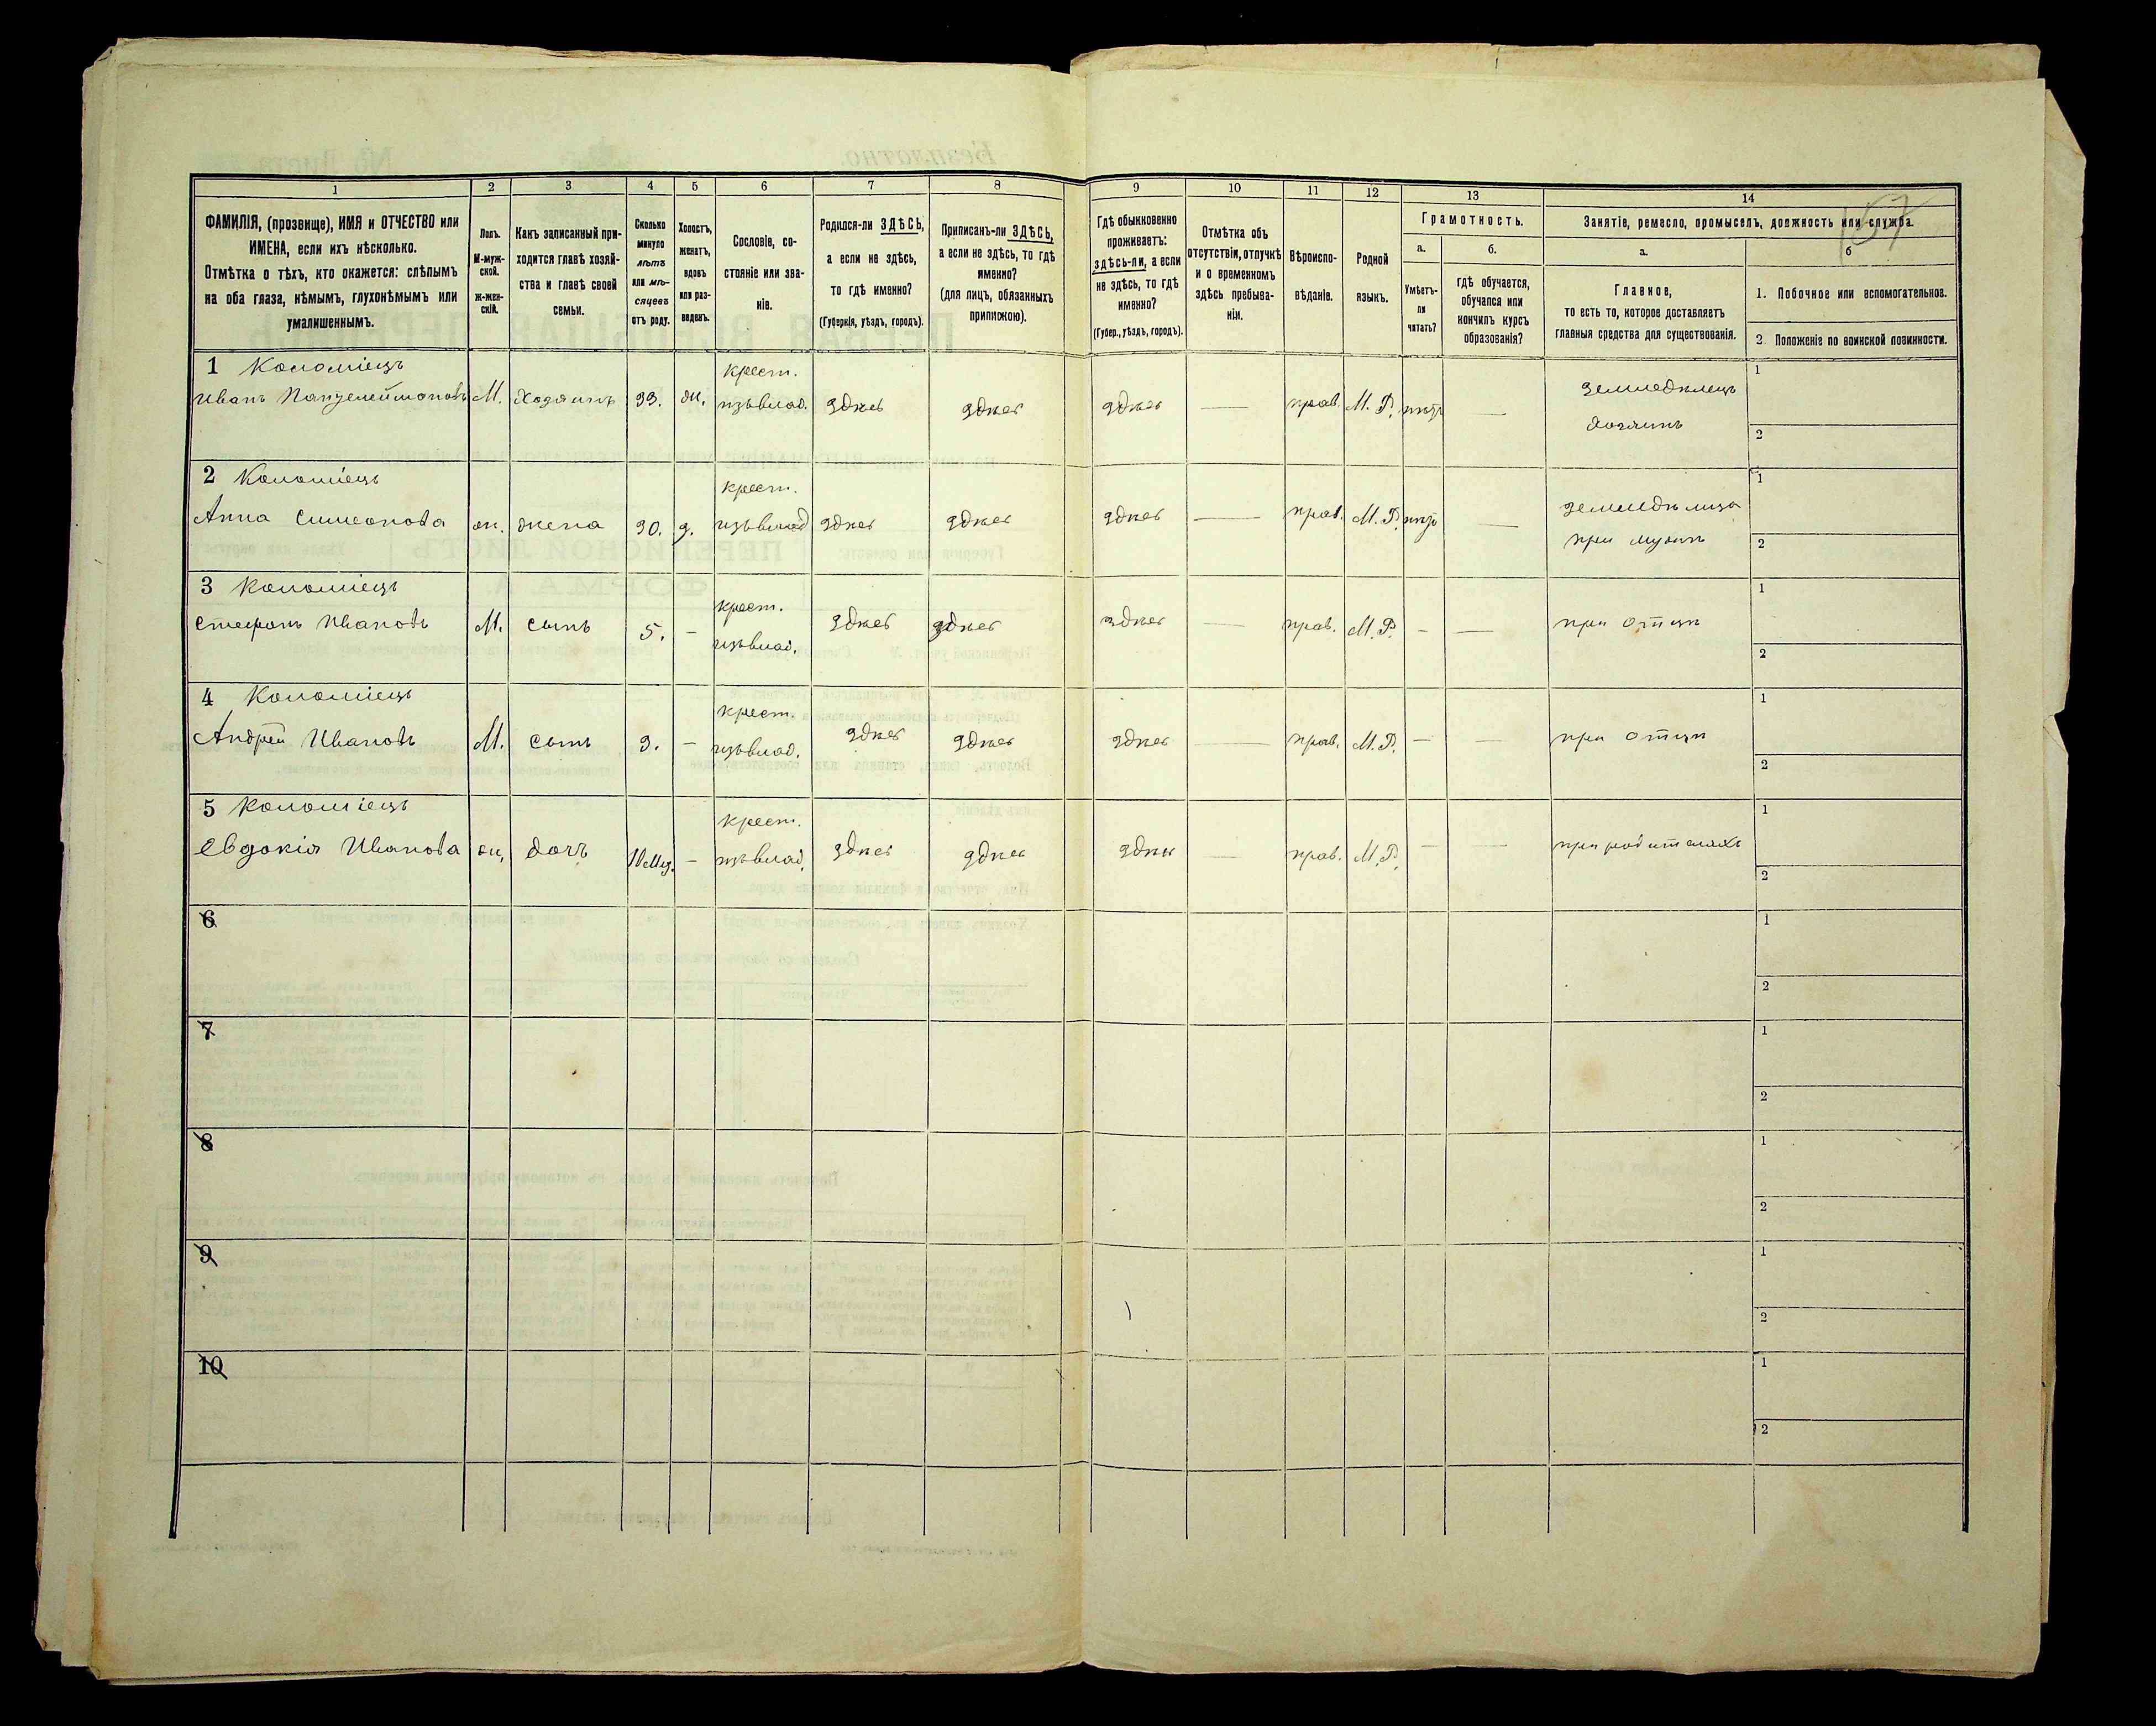 57
1 2 3 4 5 6 7 8 9 10 11 12 13 14
ФАМИЛІЯ, (прозвище), ИМЯ и ОТЧЕСТВО или
ИМЕНА, если ихъ нѣсколько.
Отмѣтка о тѣхъ, кто окажется: слѣпымъ
на оба глаза, нѣмымъ, глухонѣмымъ или
умалишеннымъ.
Полъ.
М-муж-
ской.
Ж-жен-
скій.
Какъ записанный при-
ходится главѣ хозяй-
ства и главѣ своей
семьи.
Сколько
минуло
лѣтъ
или мѣ-
сяцевъ
отъ роду.
Холостъ,
женатъ,
вдовъ
или раз-
веденъ.
Сословіе, со-
стояніе или зва-
ніе.
Родился-ли ЗДѢСЬ,
а если не здѣсь,
то гдѣ именно?
(Губернія, уѣздъ, городъ).
Приписанъ-ли ЗДѢСЬ,
а если не здѣсь, то гдѣ
именно?
(для лицъ, обязанныхъ
припискою).
Гдѣ обыкновенно
проживаетъ:
здѣсь-ли, а если
не здѣсь, то гдѣ
именно?
(Губер., уѣздъ, городъ).
Отмѣтка объ
отсутствіи, отлучкѣ
и о временномъ
здѣсь пребыва-
ніи.
Вѣроиспо-
вѣданіе.
Родной
языкъ.
Грамотность.
а.
Умѣетъ-
ли
читать?
б.
гдѣ обучается,
обучался или
кончилъ курсъ
образованія?
Занятіе, ремесло, промыселъ, должность или служба.
а.
Главное,
то есть то, которое доставляетъ
главныя средства для существованія.
б
1. Побочное или вспомогательное.
2. Положеніе по воинской повинности.
1 Коломіецъ
Иванъ Пантелеймоновъ М. Хозяинъ 33. ж. крест. изъ влад. здѣсь здѣсь здѣсь — прав. М. Р. нѣтъ — земледѣлецъ хозяинъ 1 2
2 Коломіецъ
Анна Симеонова ж. жена 30. з. крест. изъ влад здѣсь здѣсь здѣсь — прав. М. Р. нѣтъ — земледѣлица при мужѣ 1 2
3 Коломіецъ
Стефанъ Ивановъ М. сынъ 5. — крест. изъ влад. здѣсь здѣсь здѣсь — прав. М. Р. — — при отцѣ 1 2
4 Коломіецъ
Андрей Ивановъ М. сынъ 3. — крест. изъ влад. здѣсь здѣсь здѣсь — прав. М. Р. — — при отцѣ 1 2
5 Коломіецъ
Евдокія Иванова ж. дочь 10 мѣс. — крест. изъ влад. здѣсь здѣсь здѣсь — прав. М. Р. — — при родителяхъ 1 2
6 1 2
7 1 2
8 1 2
9 1 2
10 1 2